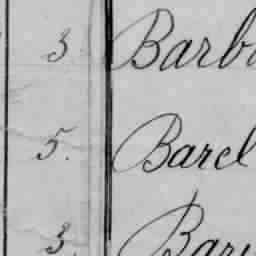 3 Barb
5. Barcl
3. Bar